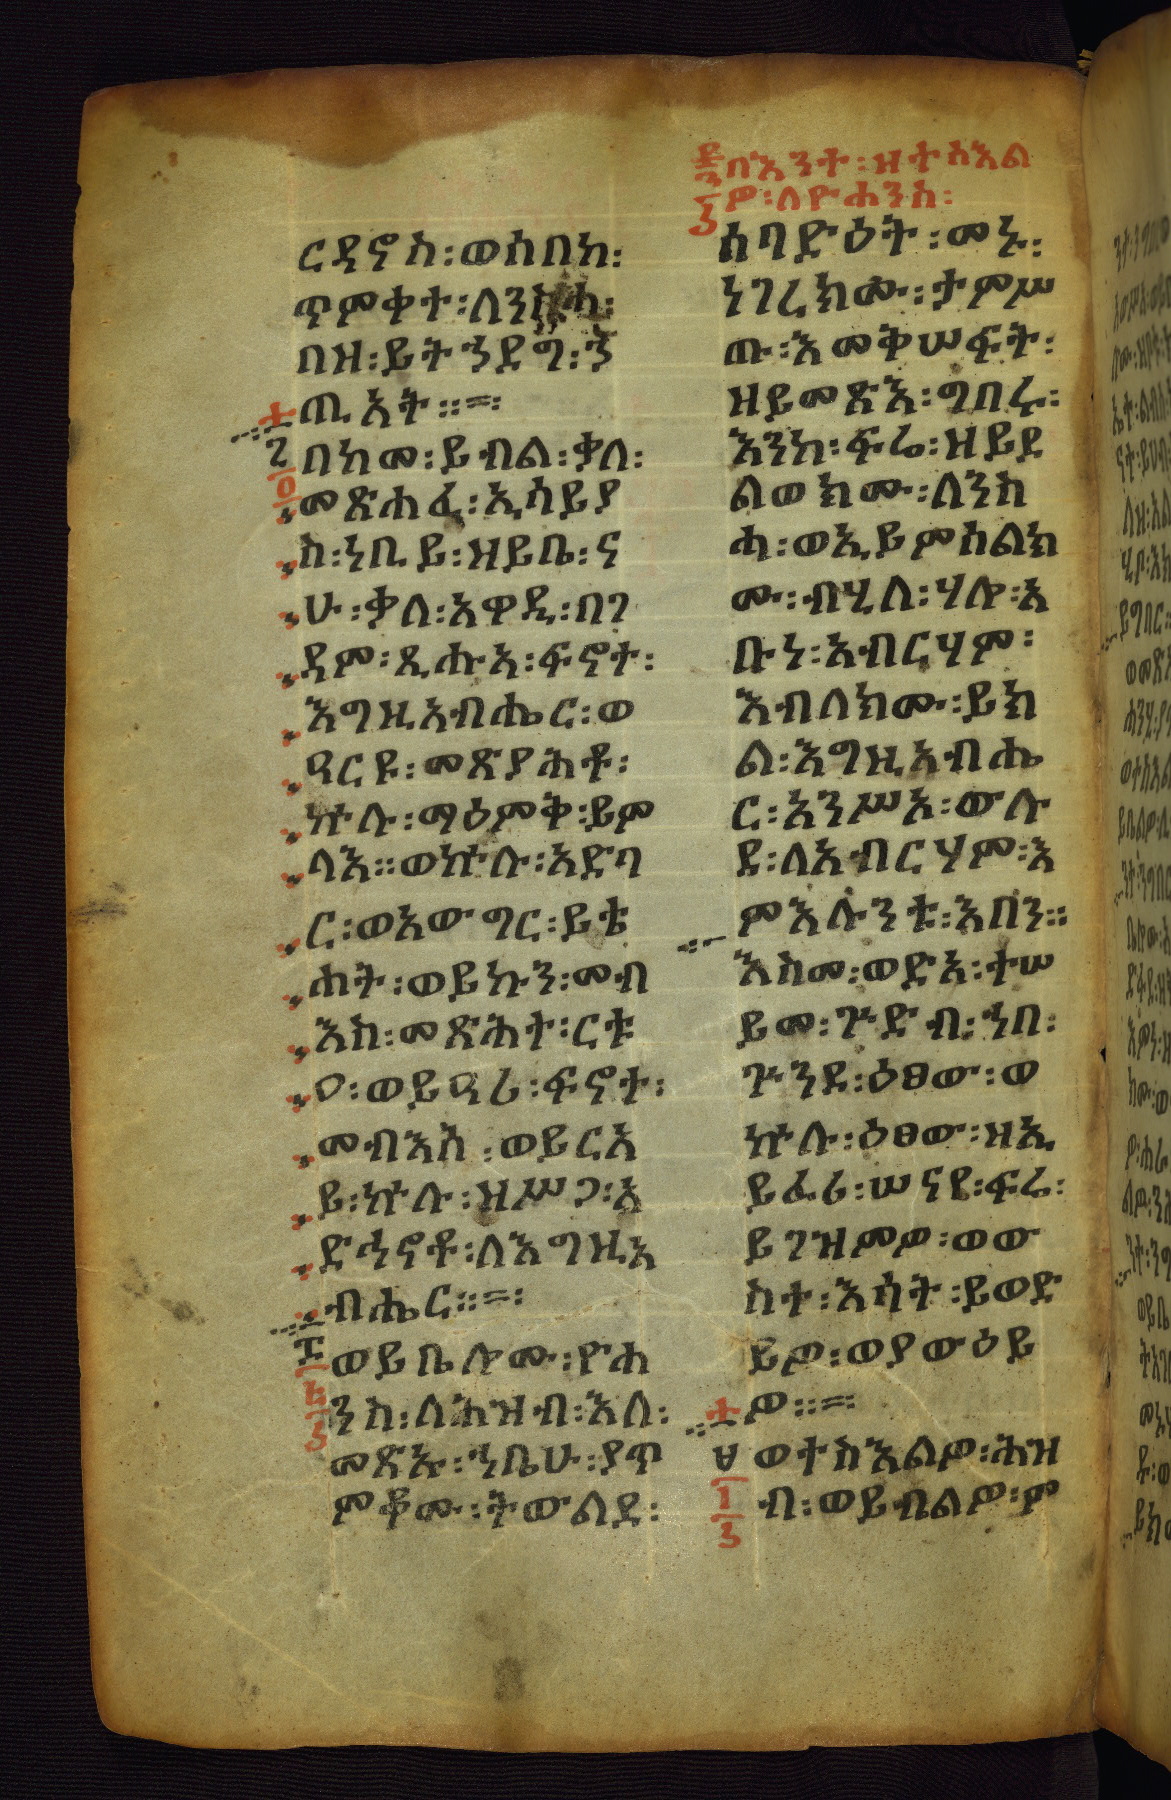 ርዳኖስ፡ወሰበከ፡
ጥምቀተ፡ለንስሓ፡
በዘ፡ይትኀደግ፡ኀ
ጢአት።=፡
በከመ፡ይብል፡ቃለ፡
መጽሐፈ፡ኢሳይያ
ስ፡ነቢይ፡ዘይቤ፡ና
ሁ፡ቃለ፡አዋዲ፡በገ
ዳም፡ጺሑአ፡ፍኖተ፡
እግዚአብሔር፡ወ
ዓርዩ፡መጽያሕቶ፡
ኵሉ፡ማዕምቅ፡ይም
ላእ።ወኵሉ፡አድባ
ር፡ወአውግር፡ይቴ
ሐት፡ወይኩን፡መብ
እስ፡መጽሕተ፡ርቱ
ዐ፡ወይዓሪ፡ፍኖተ፡
መብእስ፡ወይርአ
ይ፡ኵሉ፡ዘሥጋ፡አ
ድኅኖቶ፡ለእግዚአ
ብሔር።=፡
፫ ወይቤሎሙ፡ዮሐ
ንስ፡ለሕዝብ፡እለ፡
መጽኡ፡ኀቤሁ፡ያጥ
ምቆሙ፡ትውልደ፡
በእንተ፡ዘተስእል
ዎ፡ለዮሐንስ፡
አባድዕት፡መኑ፡
ነገረክሙ፡ታምሥ
ጡ፡እመቅሠፍት፡
ዘይመጽእ፡ግበሩ፡
እንከ፡ፍሬ፡ዘይደ
ልወክሙ፡ለንስ
ሓ፡ወኢይምስልክ
ሙ፡ብሂለ፡ሃሎ፡አ
ቡነ፡አብርሃም፡
እብለክሙ፡ይክ
ል፡እግዚአብሔ
ር፡አንሥአ፡ውሉ
ደ፡ለአብርሃም፡እ
ምእሉንቱ፡እበን።
እስመ፡ወድአ፡ተሠ
ይመ፡ጕድብ፡ኀበ፡
ጕንደ፡ዕፀው፡ወ
ኵሉ፡ዕፀው፡ዘኢ
ይፈሪ፡ሠናየ፡ፍሬ፡
ይገዝምዎ፡ወው
ስተ፡እሳት፡ይወድ
ይዎ፡ወያውዕይ
ዎ።=፡
፬ ወተስእልዎ፡ሕዝ
ብ፡ወይብልዎ፡ም